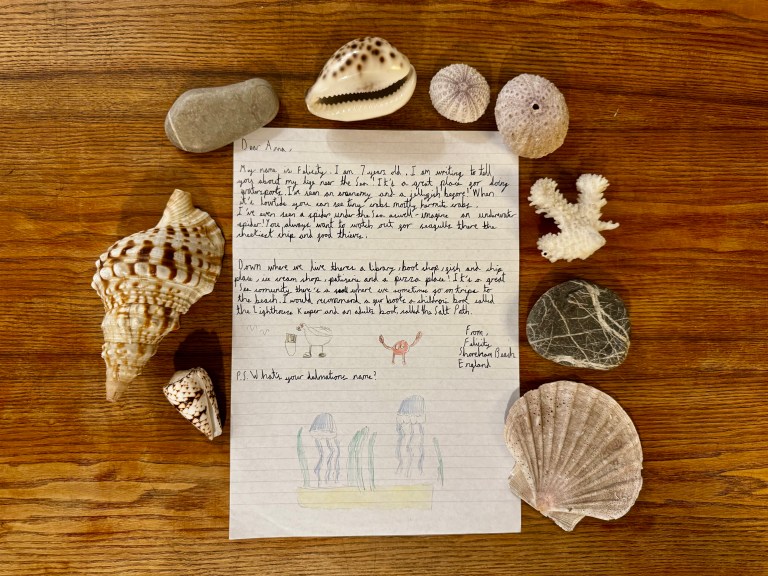 Dear Anna,
My name is Felicity. I am 7 years old. I am writing to tell
you about my life near the Sea! It's a great place for doing
watersports. I've seen an anenemy and a jellyfish before! When
it's lowtide you can see tiny crabs mostly hermit crabs.
I've even seen a spider under the Sea aswell - imagine an underwater
spider! You always want to watch out for seagulls there the
cheekiest chip and food thieves.
Down where we live theres a library, book shop, fish and chip
place, ice cream shop, patiserie and a pizza place! It's a great
Sea comunity, there's a where we sometimes go on trips to
the beach. I would recommend a few books a childrens book called
the Lighthouse Keeper and an adults book called the Salt Path.
From,
Felicity
Shoreham Beach
England
P.S. What's your dalmations name?